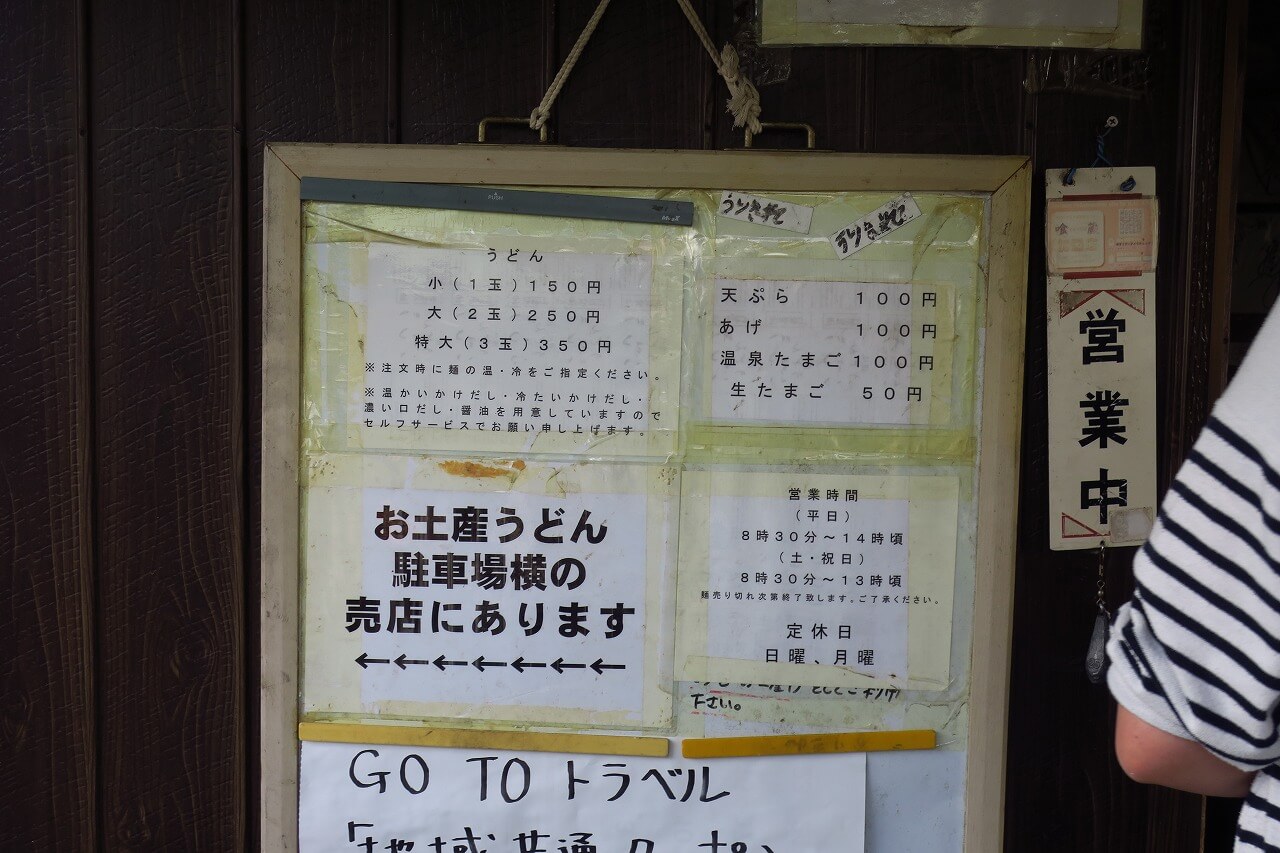 うどん
小(1玉)150円
大(2玉)250円
特大(3玉)350円
※注文時に麺の温・冷をご指定ください。
※温かいかけだし・冷たいかけだし・
濃い口だし・醤油を用意していますので
セルフサービスでお願い申し上げます。
天ぷら 100円
あげ 100円
温泉たまご100円
生たまご 50円
お土産うどん
駐車場横の
売店にあります
←←←←←←←
営業時間
(平日)
8時30分～14時頃
(土・祝日)
8時30分～13時頃
麺売り切れ次第終了致します。ご了承ください。
定休日
日曜、月曜
下さい。
GO TOトラベル
営業中